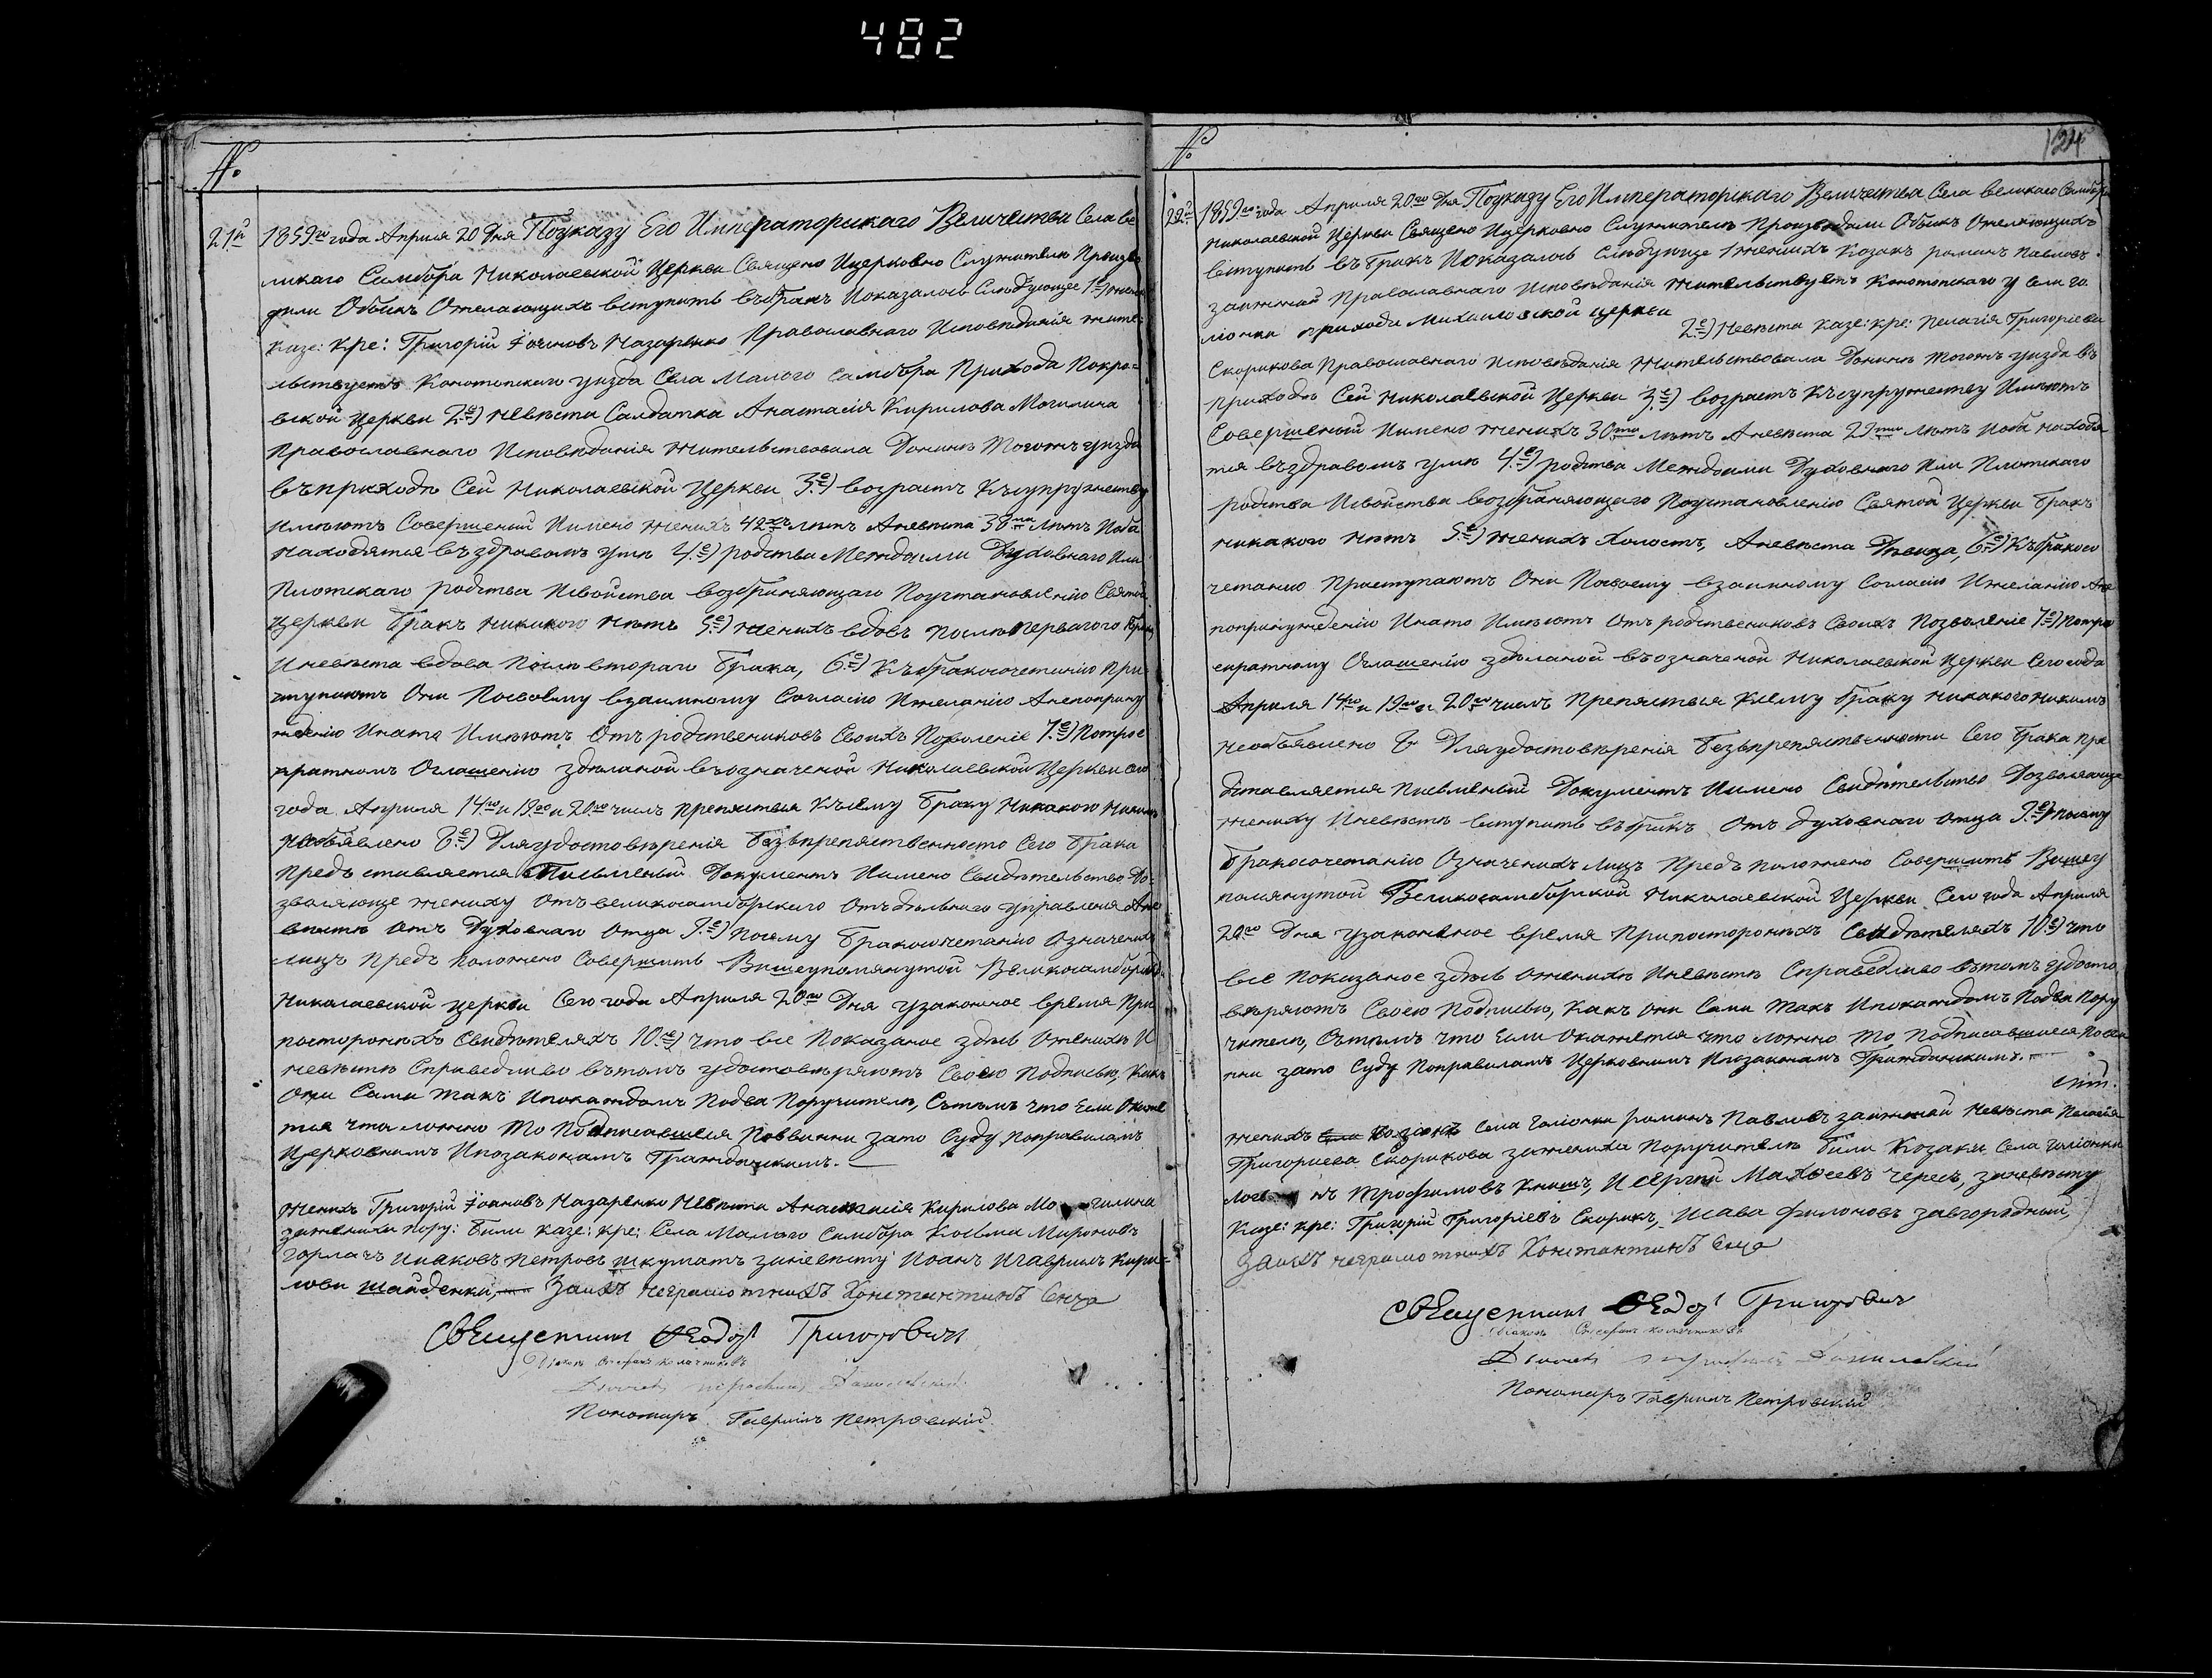 482
№.
21й 1859го года Апреля 20 Дня По Указу Его Императорскаго Величества Села ве
ликаго Самбора Николаевской Церкви Священо Ицерковно Служители Произво
дили Обыскъ Ожелающихъ вступить вбракъ Показалось Следующее 1е) жених
казе: кре: Григорій Іоановъ Назаренко Православнаго Исповѣданія жите
льствуетъ Конотопскаго уизда Села Малого самбора Прихода Покро=
вской Церкви 2е) Невѣста Салдатка Анастасія Кирилова Могилина
Православнаго Исповѣданія Жительствовала Донинѣ Тогожъ уизда
въприходѣ Сей Николаевской Церкви 3е) возрастъ Къ супружеству
Имѣютъ Совершений Имено женихъ 42хъ лѣтъ Аневѣста 38ми лѣтъ Иоба
находятся въздравомъ умѣ 4е) родства Междоими Духовнаго Или
Плотскаго родства Исвойства возбраняющаго Поустановленію Святой
церкви бракъ никакого нѣтъ 5е) женихъ вдовъ послѣ перваго брака
Иневѣста вдова Послѣ втораго брака, 6е) Къбракосочетанію При
ступаютъ Они Посвоему взаимному Согласію Ижеланію Анепоприну
ждению Инато Имѣютъ Отъ родствениковъ Своихъ Позволеніе 7е) Потрое
кратномъ Оглашенію зделаной въозначеной Николаевской Церкви сего
года Апреля 14го и 19го и 20го числъ препятствия Къ сему браку Никакого Никимъ
необъявлено 8е) Для удостовѣренія безъпрепятственности Сего брака
предъставляется Писменый Документъ Имено Свидетельство До=
зволяюще жениху Отъ великосамборскаго Отъдѣльнаго управления Ане
вѣстѣ Отъ Духовнаго Отца 9е) Посему бракосочетанію Означеныхъ
лицъ предъ положено Совершить Вишеупомянутой Великосамборской
Николаевской церкви Сего года Апреля 20го Дня узаконеное время При
посторонихъ Свидѣтеляхъ 10е) что все Показаное здѣсь Оженихѣ И
невѣстѣ Справедливо вътомъ удостовѣряютъ Своею Подписью, Какъ
Они Сами такъ Ипокаждомъ Подва Поручителя, Сътѣмъ что Если Окаже
тся что ложно то Подписавшеся Повинни зато Суду, поправиламъ
Церковнимъ Ипозаконамъ Гражданскимъ.
Женихъ Григорій Іоановъ Назаренко Невѣста Анастасія Кирилова Могилина
зажениха пору: били казе: кре: Села Малого Самбора Косьма Мироновъ
Горлачъ Ияковъ Петровъ шкуматъ заневѣсту Иоанъ Игаврилъ Кири=
лови Шайденки, Заихъ неграмотнихъ Константинъ Сенча
Священикъ Феодоръ Григоровичъ
Пономарь Гавриилъ Петровскій
№.
124
22й 1859го года Апреля 20го Дня По указу Его Императорскаго Величества Села великаго Самбора
Николаевской Церкви Священо Ицерковно Служители Производили Обыскъ Ожелающихъ
вступить въ бракъ Показалось Следующее 1 женихъ Козакъ романъ Павловъ
заижмай Православнаго Исповѣданія жительствуетъ Конотопскаго у села го
лионки прихода Михаиловской церкви 2е) Невѣста казе: кре: Пелагія Григоріева
Скорикова Православнаго Исповѣданія Жительствовала Донинѣ тогожъ уизда въ
приходѣ Сей Николаевской Церкви 3е) возрастъ Късупружеству Имѣютъ
Совершеный Имено женихъ 30ти лѣтъ Аневѣста 23ти лѣтъ Иоба находя
тся въздравомъ умѣ 4е) родства Междоими Духовнаго Или Плотскаго
родства Исвойства возбраняющаго Поустановленію Святой Церкви бракъ
никакого нѣтъ 5е) женихъ холостъ, Аневѣста Дѣвица, 6е) Къбракосо
четанію Приступаютъ Они Посвоему взаимному Согласію Ижеланію Ане
попринуждению Инато Имѣютъ Отъ родствениковъ Своихъ Позволеніе 7е) Потрое
кратному Оглашенію здѣланой въозначеной Николаевской Церкви Сего года
Апреля 14го и 19го и 20го числъ Препятствия Ксему браку никакого никимъ
необъявлено 8 Для удостовѣренія безъпрепятственности Сего брака пре
дставляется писменый Документъ Имено Свидѣтельство Дозволяюще
жениху Иневѣстѣ вступить въбракъ Отъ духовнаго отца 9е) посему
бракосочетанію Означенихъ лицъ Предъ положено Совершить Вишеу
помянутой Великосамборской Николаевской Церкви Сего года Апреля
20го Дня узаконеное время Припосторонихъ Свидѣтеляхъ 10е) что
все Показаное здѣсь Оженихѣ Иневѣстѣ Справедливо вътомъ удосто
веряютъ Своею Подписью, Какъ Они Сами такъ Ипокаждомъ Подва Пору
чителя, Сътѣмъ что Если Окажется что ложно то Подписавшиеся Повин
ни зато Суду Поправиламъ Церковнимъ Ипозаконамъ Гражданскимъ.
женихъ Села Голіонки романъ Павловъ заижмай Невѣста Пелагія
Григориева Скорикова зажениха Поручители били Козаки Села Голіонки
Трофимовъ Книшъ, И Сергий Махвеевъ Чересъ, заневѣсту
Казе: кре: Григорій Григоріевъ Скорикъ, Исава Филоновъ Завгородный,
Заихъ неграмотнихъ Константинъ Сенча
Священикъ Феодоръ Григоровичъ
Пономарь Гавриилъ Петровскій